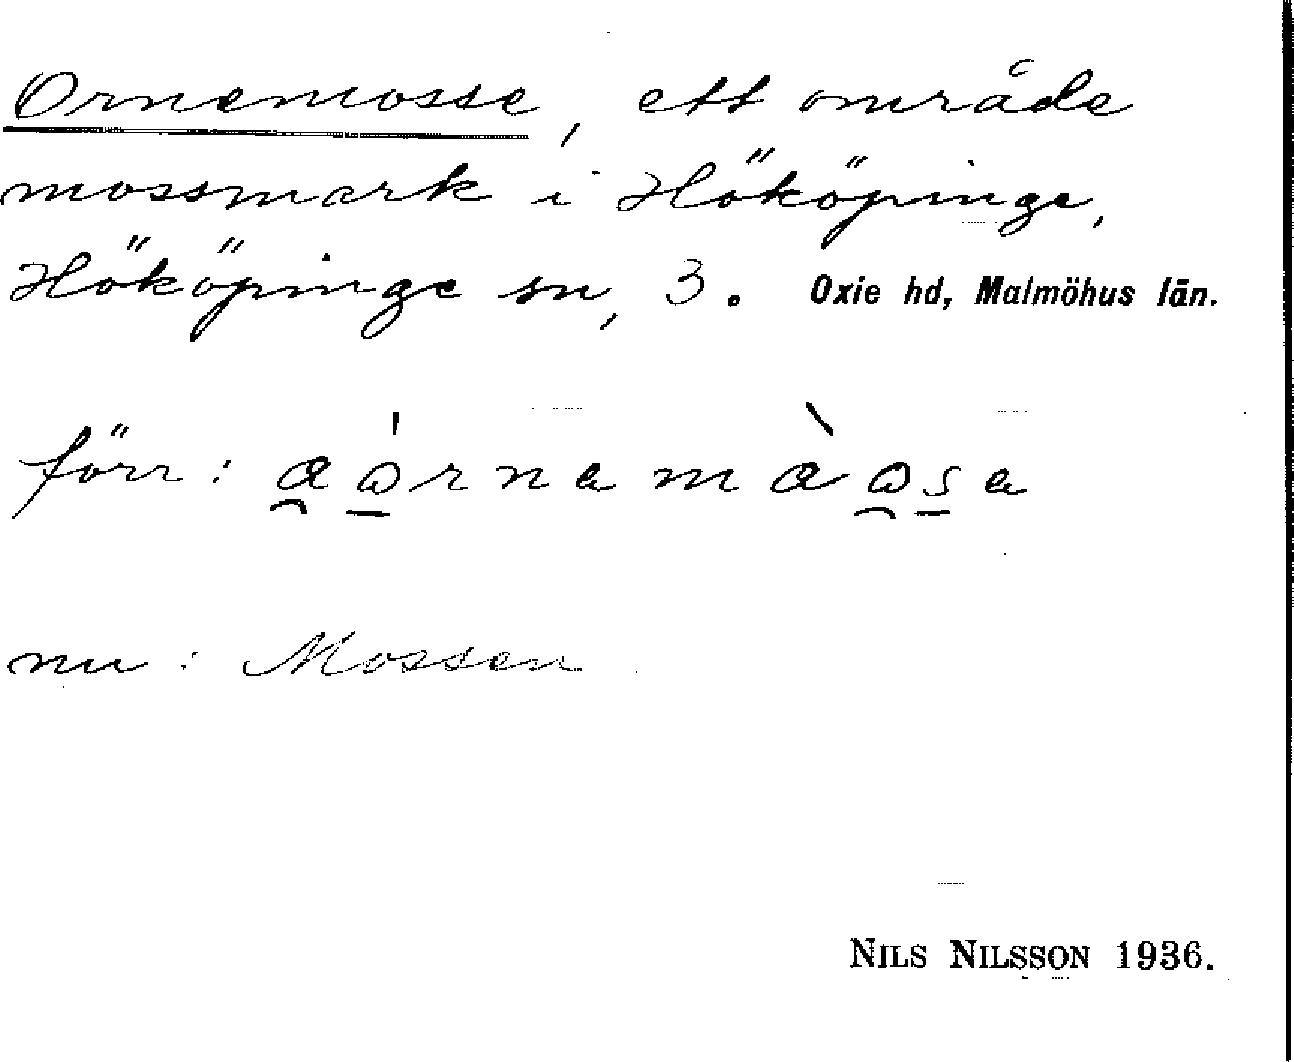 Ornemosse, ett område
mossmark i Hököpinge,
Hököpinge sn, 3. Oxie hd, Malmöhus län.
förr:
nu: Mossen
NILS NILSSON 1936.